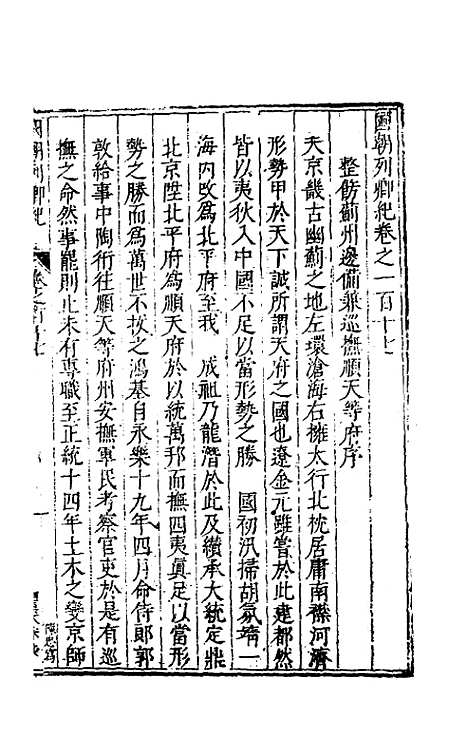 國朝列卿紀卷之一百十七
整飭薊州邊備兼巡撫順天等府序
天京畿古幽薊之地左環滄海右擁太行北枕居庸南襟河濟
形勢甲於天下誠所謂天府之國也遼金元雖嘗於此建都然
皆以夷狄入中國不足以當形勢之勝　國初汛掃胡氛靖一
海內改爲北平府至我　成祖乃龍潛於此及纘承大統定鼎
北京陞北平府爲順天府於以統萬邦而撫四夷眞足以當形
勢之勝而爲萬世不拔之鴻基自永樂十九年四月命侍郎郭
敦給事中陶衎往順天等府州安撫軍民考察官吏於是有巡
撫之命然事罷則止未有專職至正統十四年土木之變京師
國朝列卿紀
卷之百十七